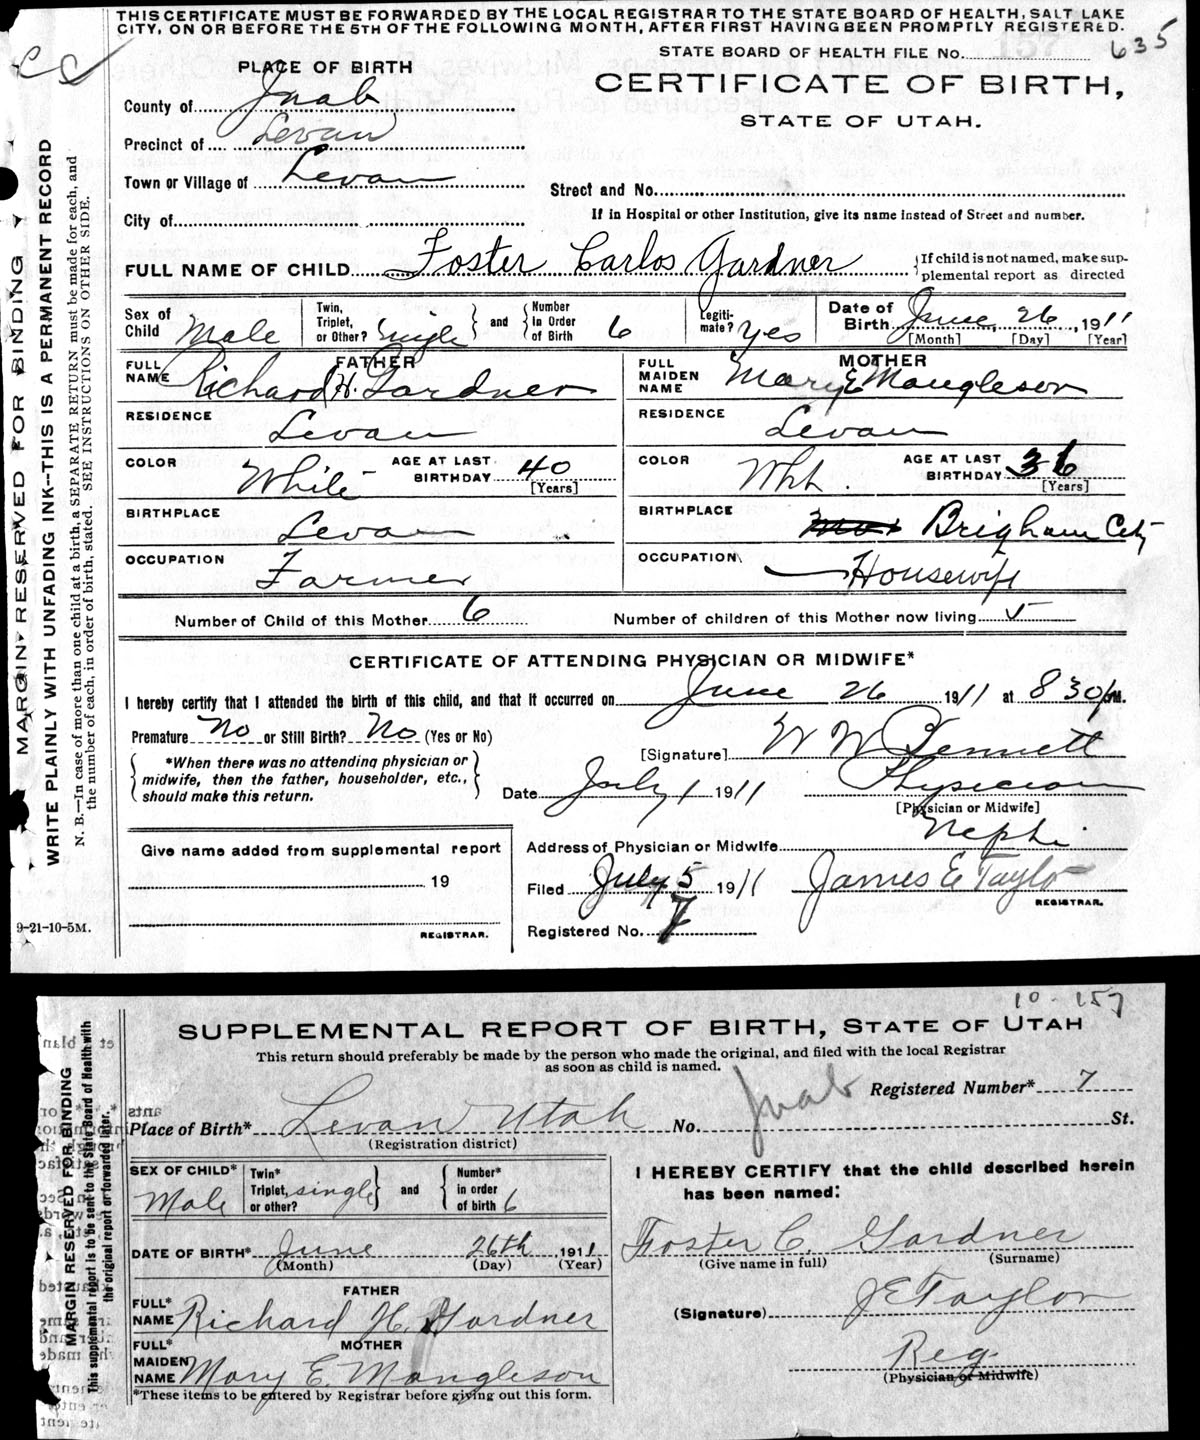 THIS CERTIFICATE MUST BE FORWARDED BY THE LOCAL REGISTRAR TO THE STATE BOARD OF HEALTH, SALT LAKE
CITY, ON OR BEFORE THE 5TH OF THE FOLLOWING MONTH, AFTER FIRST HAVING BEEN PROMPTLY REGISTERED.
STATE BOARD OF HEALTH FILE No. 635
PLACE OF BIRTH
CERTIFICATE OF BIRTH,
STATE OF UTAH.
County of Juab
Precinct of Levan
Town or Village of Levan
Street and No.
City of
If in Hospital or other Institution, give its name instead of Street and number.
FULL NAME OF CHILD Foster Carlos Gardner
If child is not named, make sup-
plemental report as directed
Sex of Child Male
Twin, Triplet, or Other? Single
and
Number in Order of Birth 6
Legiti-mate? Yes
Date of Birth June 26, 1911
[Month] [Day] [Year]
FATHER
FULL NAME Richard H. Gardner
RESIDENCE Levan
COLOR White
AGE AT LAST BIRTHDAY 40
[Years]
BIRTHPLACE Levan
OCCUPATION Farmer
MOTHER
FULL MAIDEN NAME Mary E Mangleson
RESIDENCE Levan
COLOR Wht.
AGE AT LAST BIRTHDAY 36
[Years]
BIRTHPLACE Brigham City
OCCUPATION Housewife
Number of Child of this Mother 6
Number of children of this Mother now living 5
CERTIFICATE OF ATTENDING PHYSICIAN OR MIDWIFE*
I hereby certify that I attended the birth of this child, and that it occurred on June 26 1911 at 8 30 p M.
Premature No or Still Birth? No (Yes or No)
*When there was no attending physician or
midwife, then the father, householder, etc.,
should make this return.
[Signature] W W Bennett
Date July 1 1911 Physician
[Physician or Midwife]
Address of Physician or Midwife Nephi
Give name added from supplemental report
19
REGISTRAR.
Filed July 5 1911 James E Taylor
REGISTRAR.
Registered No. 7
9-21-10-5M.
MARGIN RESERVED FOR BINDING
WRITE PLAINLY WITH UNFADING INK--THIS IS A PERMANENT RECORD
N. B.—In case of more than one child at a birth, a SEPARATE RETURN must be made for each, and
the number of each, in order of birth, stated. SEE INSTRUCTIONS ON OTHER SIDE.
10-157
SUPPLEMENTAL REPORT OF BIRTH, STATE OF UTAH
This return should preferably be made by the person who made the original, and filed with the local Registrar
as soon as child is named.
Juab
Registered Number* 7
Place of Birth* Levan Utah No. St.
(Registration district)
SEX OF CHILD* Male
Twin* Triplet, or other? single
and
Number* in order of birth 6
DATE OF BIRTH* June 26th, 1911
(Month) (Day) (Year)
FATHER
FULL* NAME Richard H. Gardner
MOTHER
FULL* MAIDEN NAME Mary E. Mangleson
*These items to be entered by Registrar before giving out this form.
I HEREBY CERTIFY that the child described herein
has been named:
Foster C. Gardner
(Give name in full) (Surname)
(Signature) J E Taylor
Reg.
(Physician or Midwife)
MARGIN RESERVED FOR BINDING
This supplemental report is to be sent to the State Board of Health with
the original report or forwarded later.